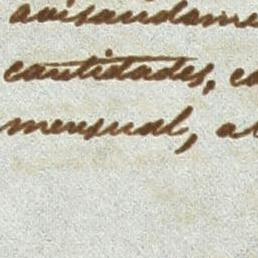 avisandome
cantidades, co
mensual, al